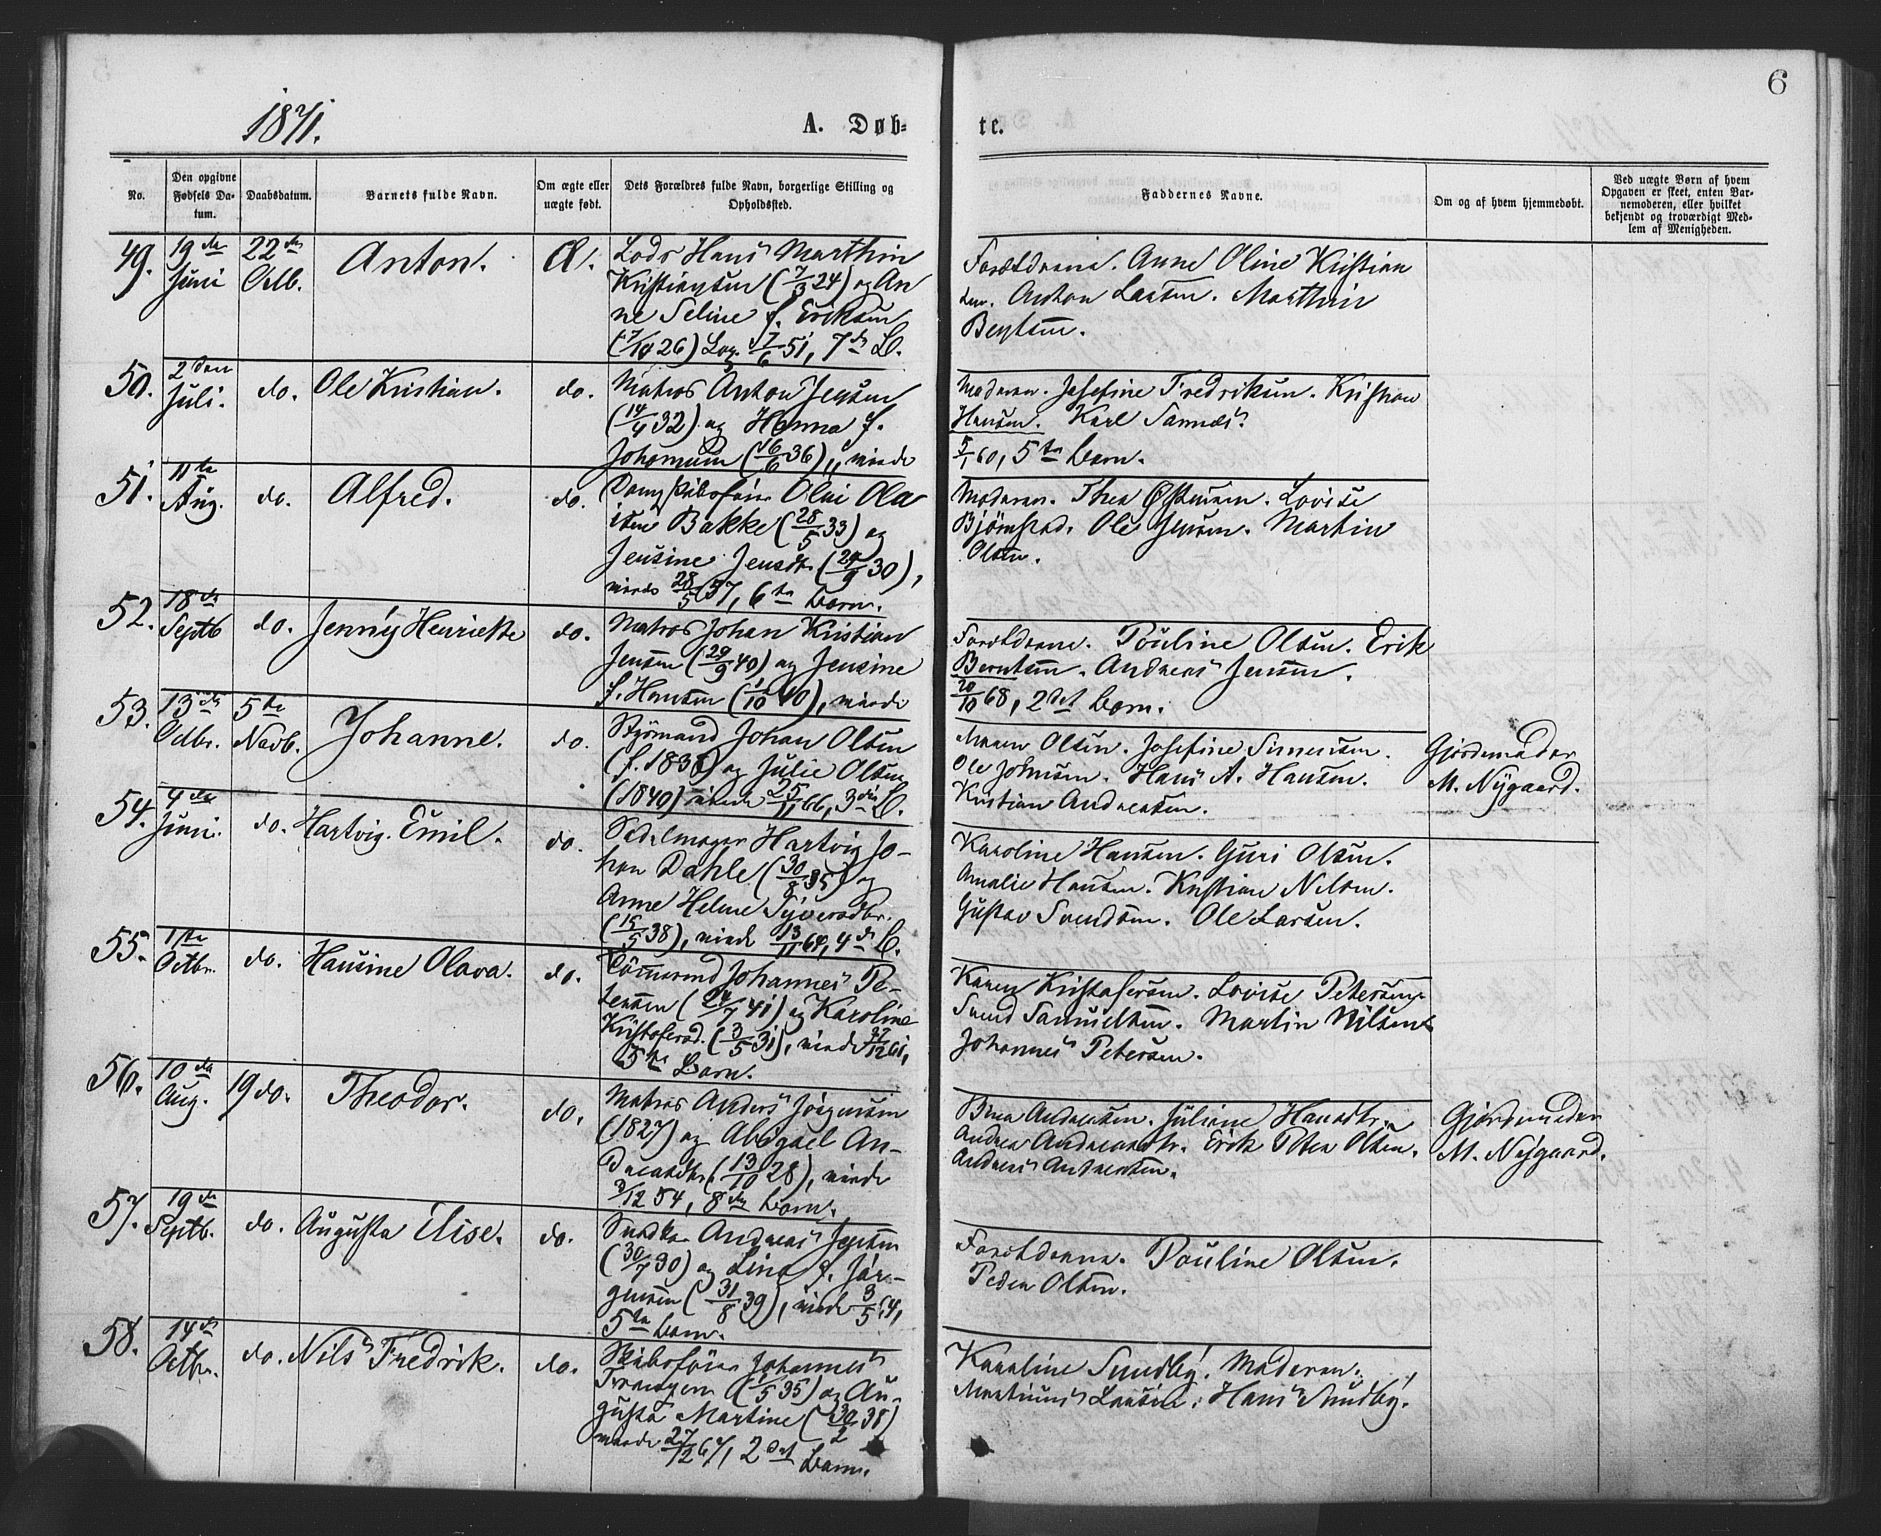 6
1871.
A. Døb-
te.
No.
Den opgivne
Fødsels Da-
tum.
Daabsdatum.
Barnets fulde Navn.
Om ægte eller
uægte født.
Dets Forældres fulde Navn, borgerlige Stilling og
Opholdssted.
Faddernes Navne.
Om og af hvem hjemmedøbt.
Ved uægte Børn af hvem
Opgaven er skeet, enten Bar-
nemoderen, eller hvilket
bekjendt og troværdigt Med-
lem af Menigheden.
49.
19de
Juni
22de
Octb.
Anton.
Æ.
Lods Hans Marthin
Kristiansen (7/3 24) og An
ne Seline f. Eriksen
51, 7de B.
Forældrene. Anne Oline Kristian
sen. Anton Larsen. Marthin
Bentsen.
50.
2den
Juli.
do.
Ole Kristian.
do.
Matros Anton Jensen
(14/4 32) og Hanna f.
Johannesen (16/6 36), viede
Moderen. Josefine Fredriksen. Kristian
Hansen. Karl Sannæs.
5/1 60, 5te Barn.
51.
11te
Aug.
do.
Alfred.
do.
Olai Ola
isen Bakke (28/5 33) og
Jensine Jensdtr. (24/9 30),
viede 28/5 57, 6te Barn.
Moderen. Thea Østensen. Lovise
Bjørnstad. Ole Jensen. Martin
Olsen.
52.
18de
Septb
do.
Jenny Henriette
do.
Matros Johan Kristian
Jensen (29/9 40) og Jensine
f. Hansen (1/10 40), viede
Forældrene. Pouline Olsen. Erik
Berntsen. Andreas Jensen.
20/10 68, 2det Barn.
53.
13de
Octbr.
5te
Novb.
Johanne.
do.
Styrmand Johan Olsen
og Julie Olsen
(1840) viede 25/11 66, 3die B.
Maren Olsen. Josefine Simensen.
Ole Johnsen. Hans A. Hansen.
Kristian Andreasen.
Gjordemoder
M. Nygaard.
54.
4de
Juni.
do.
Hartvig Emil.
do.
Sadelmager Hartvig Jo-
han Dahle (30/8 35) og
Anne Helene Syversdtr.
(15/5 38), viede 13/11 64, 4de B.
Karoline Hansen. Guri Olsen.
Amalie Hansen. Kristian Nilsen.
Gustav Svendsen. Ole Larsen.
55.
1ste
Octbr.
do.
Hansine Olava.
do.
Tømmermd Johannes Pe-
tersen (24/7 41) og Karoline
Kristofersd. (3/5 31), viede 27/12 61,
5te Barn.
Karen Kristofersen. Lovise Petersen.
Svend Samuelsen. Martin Nilsen
Johannes Petersen.
56.
10de
Aug.
19 do.
Theodor.
do.
Matros Anders Jørgensen
(1827) og Abigael An-
dreasdtr. (13/10 28), viede
3/12 54, 8de Barn.
Andreasen. Juliane Hansdtr.
Andrea Andreasdtr. Erik Peter Olsen.
Andreas Andreasen.
Gjordemoder
M. Nygaard.
57.
19de
Septb.
do.
Augusta Elise.
do.
Snedker Andreas Jensen
(30/7 30) og Lina f. Jør-
gensen (31/8 39), viede 3/5 64,
5te Barn.
Forældrene. Pouline Olsen.
Peder Olsen.
58.
14de
Octbr.
do.
Nils Fredrik.
do.
Skibsfører Johannes
og Au-
gusta Martine (30/2 38)
viede 27/12 67, 2det
Barn.
Karoline Sundby. Moderen.
Martinus Larsen. Hans Sundby.